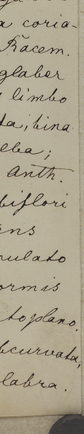 a coria-
Racem.
glaber
limbo
ta, bina
Anth.
biflori
ens
nulato
ormis
toplano.
bcurvata,
labra.